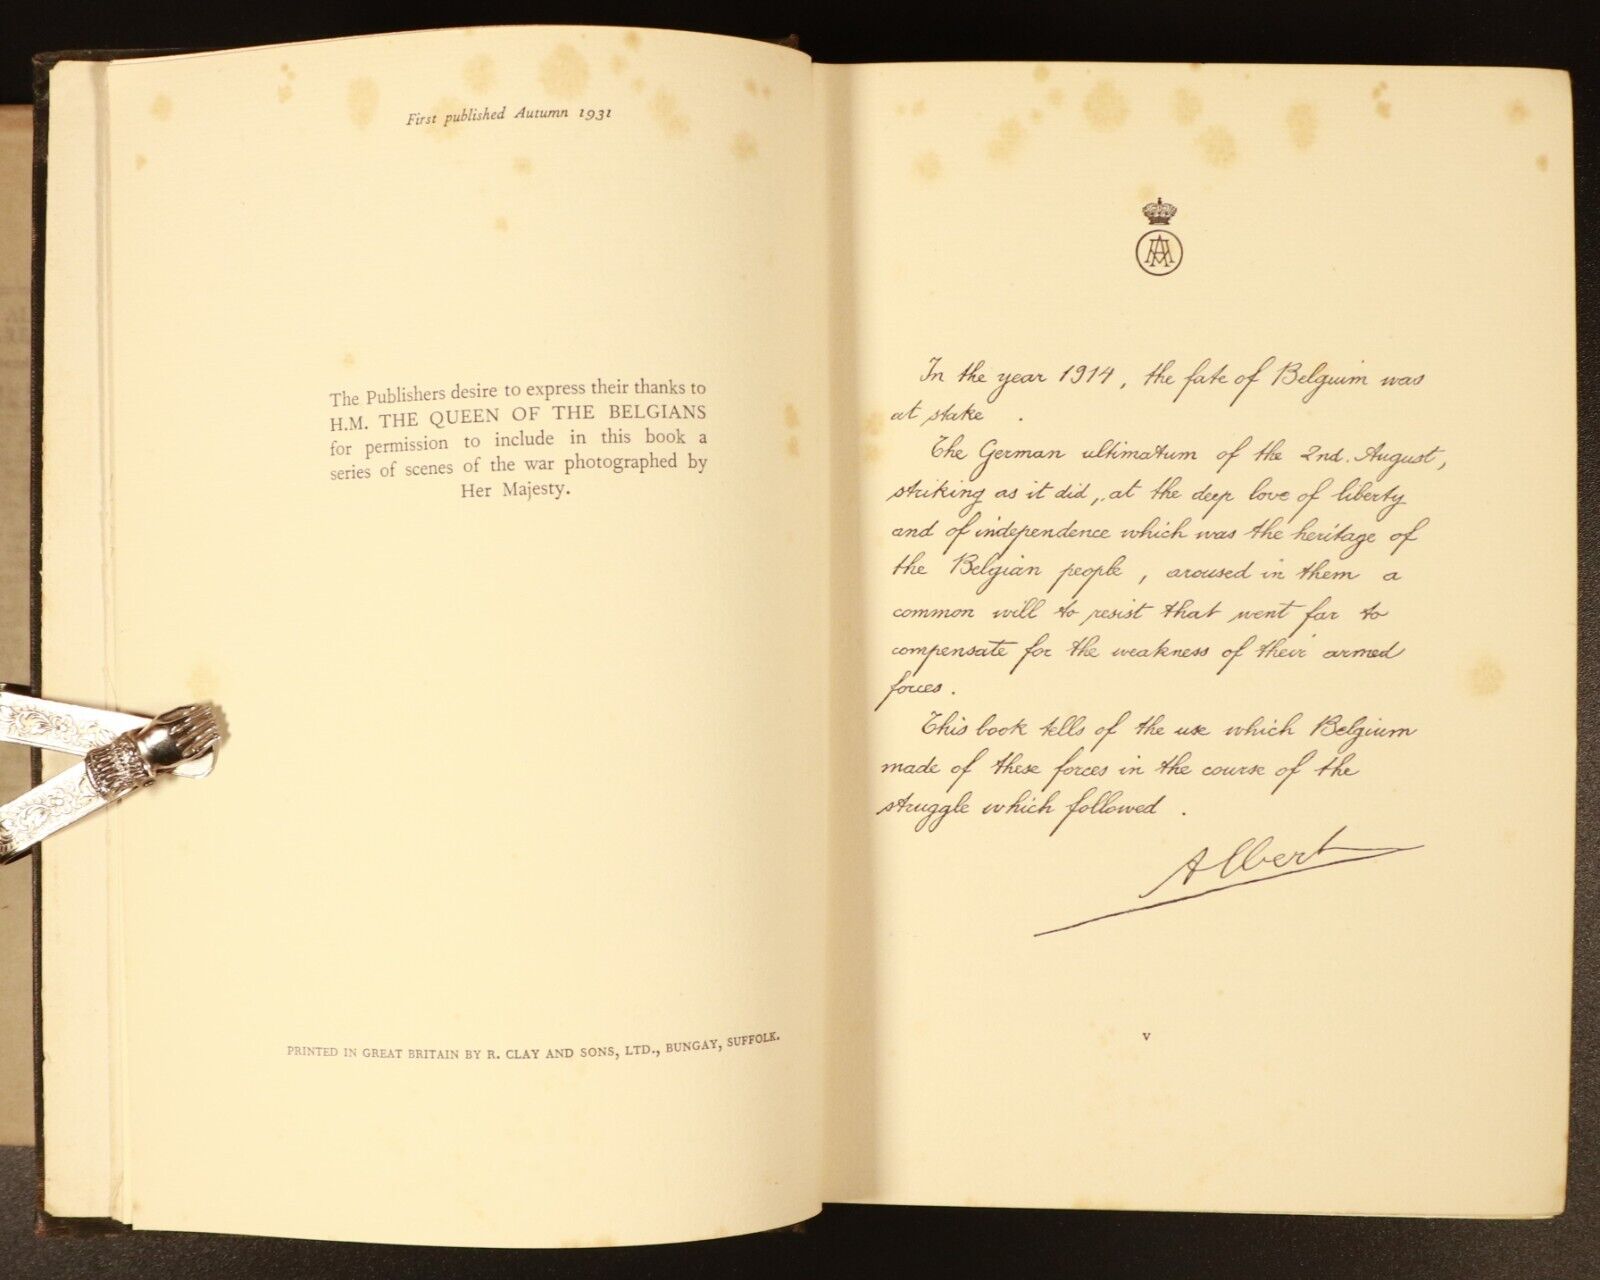 First published Autumn 1931
The Publishers desire to express their thanks to
H.M. THE QUEEN OF THE BELGIANS
for permission to include in this book a
series of scenes of the war photographed by
Her Majesty.
PRINTED IN GREAT BRITAIN BY R. CLAY AND SONS, LTD., BUNGAY, SUFFOLK.
In the year 1914, the fate of Belgium was
at stake.
The German ultimatum of the 2nd. August,
striking as it did, at the deep love of liberty
and of independence which was the heritage of
the Belgian people, aroused in them a
common will to resist that went far to
compensate for the weakness of their armed
forces.
This book tells of the use which Belgium
made of these forces in the course of the
struggle which followed.
Albert
v